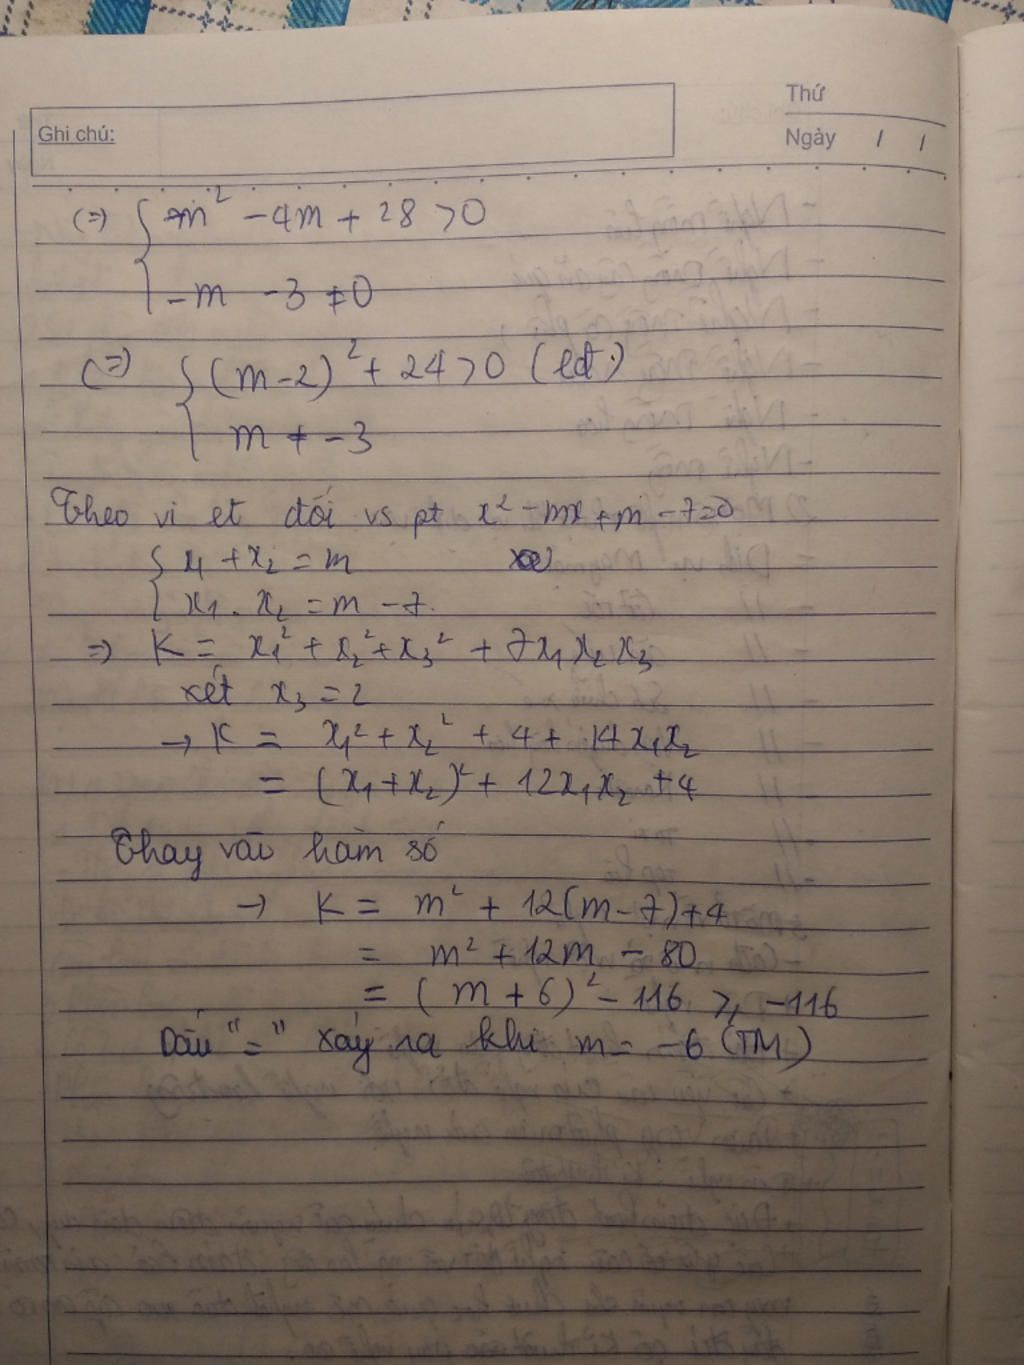 Thứ
Ghi chú:
Ngày / /
(=) { m² - 4m + 28 > 0
- m - 3 ≠ 0
(=) { (m-2)² + 24 > 0 (lđ)
m ≠ -3
Theo vi et đối vs pt x² - mx + m - 7 = 0
{ x₁ + x₂ = m
x₁ . x₂ = m - 7.
=> K = x₁² + x₂² + x₃² + 7x₁x₂x₃
xét x₃ = 2
→ K = x₁² + x₂² + 4 + 14x₁x₂
= (x₁ + x₂)² + 12x₁x₂ + 4
Thay vào hàm số
→ K = m² + 12(m-7) + 4
= m² + 12m - 80
= (m + 6)² - 116 ≥ -116
Dấu "=" xảy ra khi m = -6 (TM)